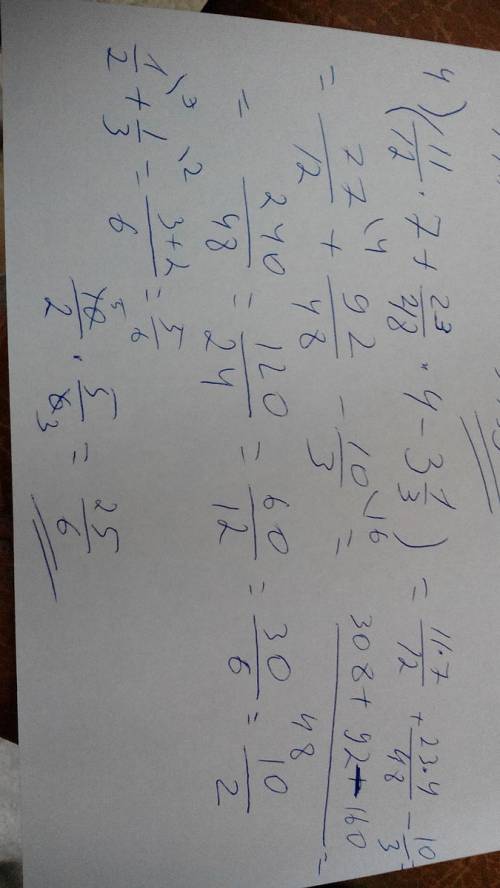 4) (11/12 · 7 + 23/48 · 4 - 3 1/3) = 11·7/12 + 23·4/48 - 10/3 =
= 77/12 \4 + 92/48 - 10/3 \16 = 308+92-160/48 =
= 240/48 = 120/24 = 60/12 = 30/6 = 10/2
1/2 \3 + 1/3 \2 = 3+2/6 = 5/6
10/2 · 5/6 = 25/6